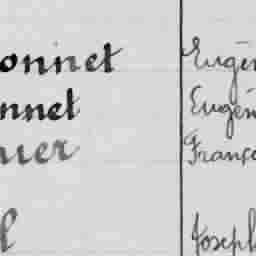 onnet Eugèn
nnet Eugén
uer Franço
l Joseph